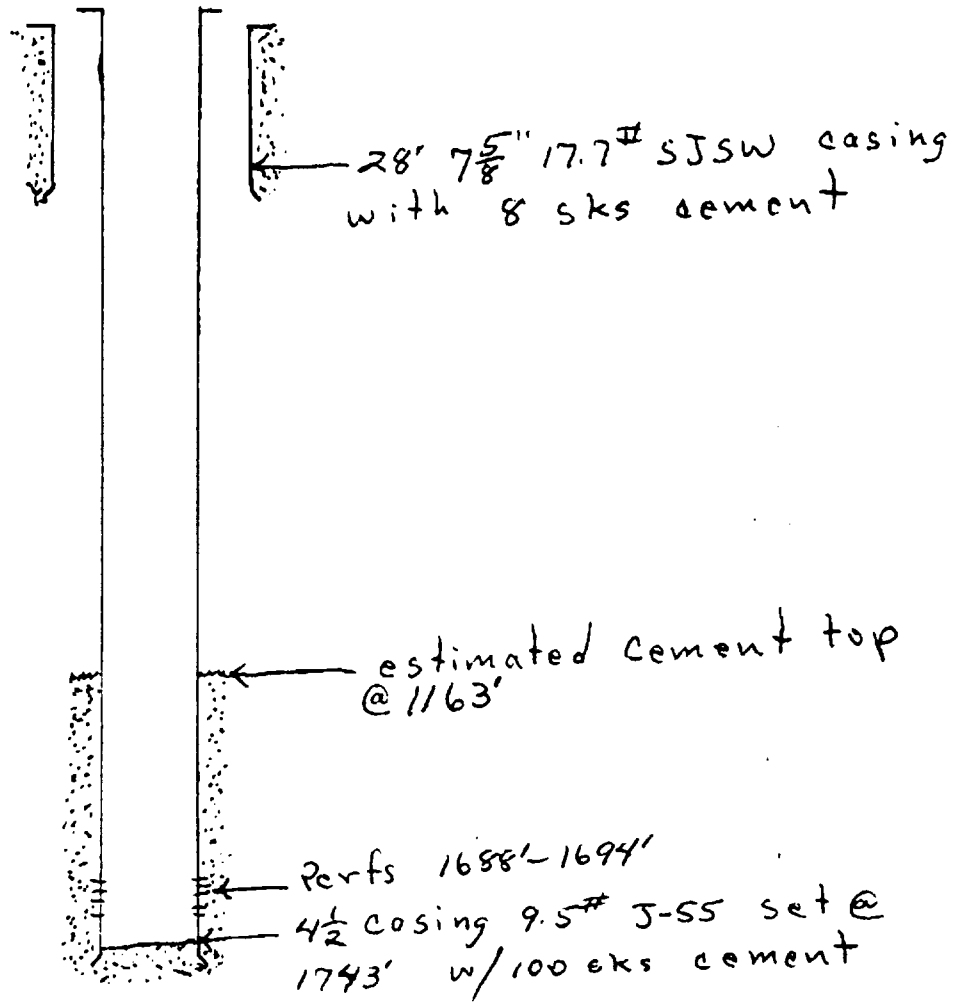 28' 7 5/8" 17.7# SJSW casing
with 8 sks cement
estimated cement top
@ 1163'
Perfs 1688'-1694'
4 1/2 casing 9.5# J-55 set @
1743' w/100 sks cement